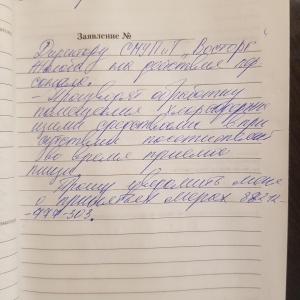 Заявление №
Директору СМУПиТ "Восторг"
Жалоба на действия пер
сонала.
- Производят обработку
помещения хлорсодержа
щими средствами в при
сутствии посетителей
во время приёма
пищи.
Прошу уведомить меня
о принятых мерах
-777-303.